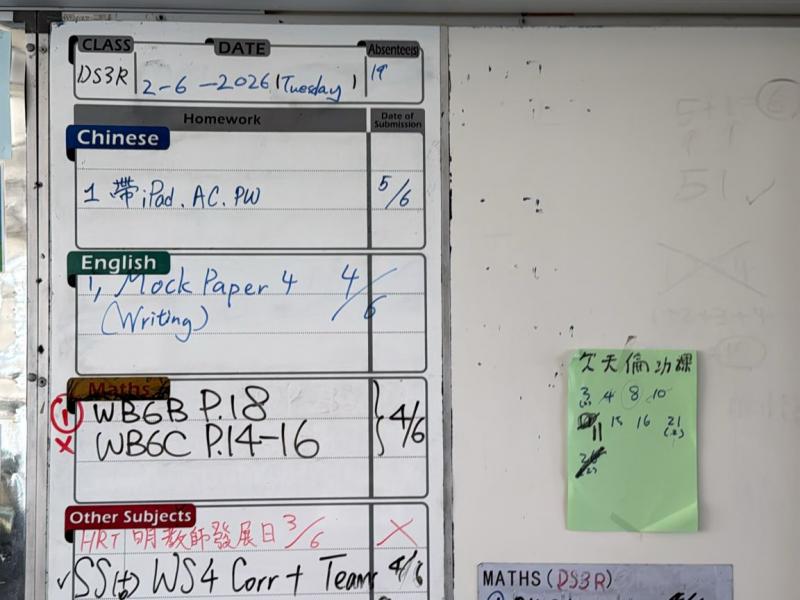 CLASS DATE Absentee(s)
DS3R 2-6-2026 (Tuesday) 19
Homework Date of Submission
Chinese
1 帶iPad. AC. PW 5/6
English
1, Mock Paper 4 4/6
(Writing)
Maths
① WB6B P.18
x WB6C P.14-16 } 4/6
Other Subjects
HRT 明教師發展日 3/6 X
✓ SS WS4 Corr + Teams 4/6
欠天倫功課
3 4 8 10
11 15 16 21
MATHS (DS3R)
5+1=6
51 ✓